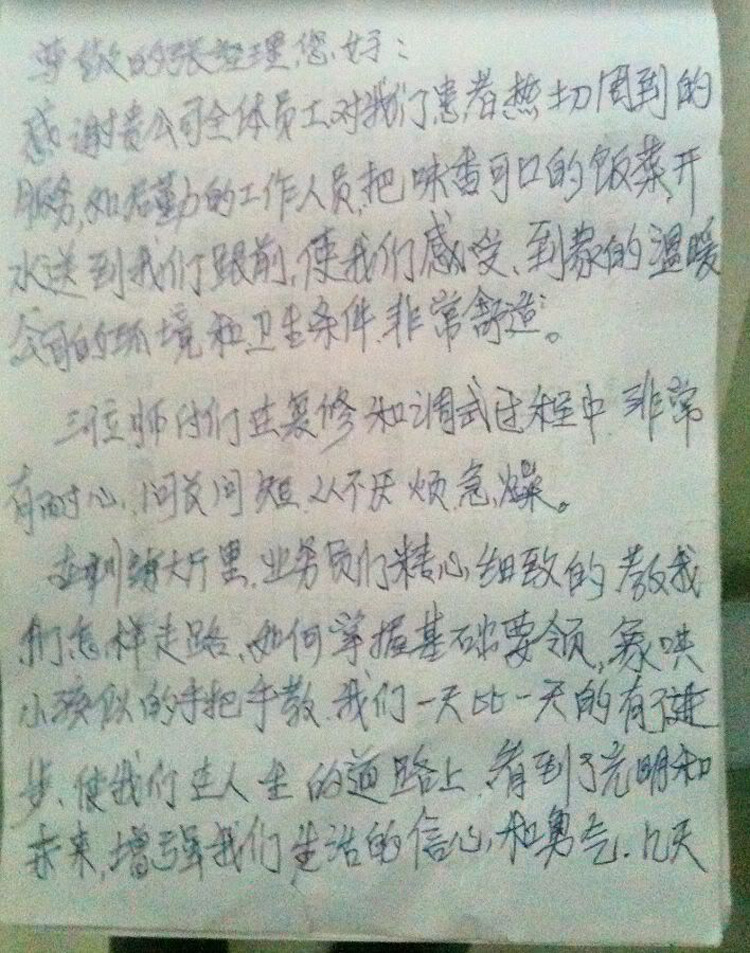 尊敬的张经理,您好:
感谢贵公司全体员工对我们患者热切周到的
服务,如后勤的工作人员,把味香可口的饭菜,开
水送到我们跟前,使我们感受、到家的温暖
公司的环境和卫生条件.非常舒适。
三位师付们在复修和调式过程中非常
有耐心,问长问短.从不厌烦.急.燥。
在训练大厅里.业务员们精心细致的教我
们怎样走路、如何掌握基础要领,象哄
小孩似的手把手教.我们一天比一天的有了进
步、使我们在人生的道路上看到了光明和
未来,增强我们生活的信心,和勇气.几天